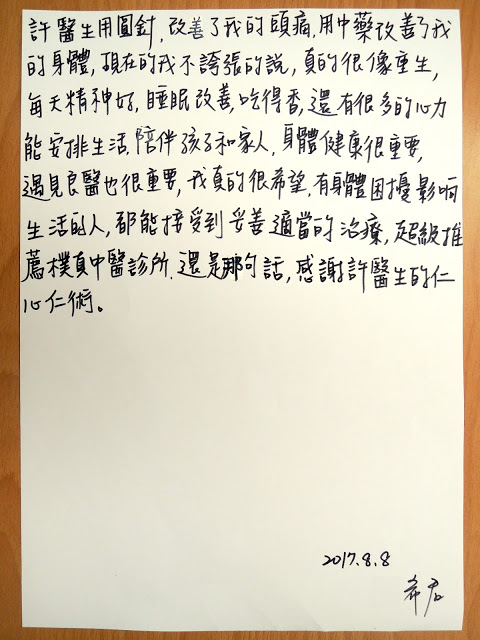 許醫生用圓針,改善了我的頭痛,用中藥改善了我
的身體,現在的我不誇張的說,真的很像重生,
每天精神好,睡眠改善,吃得香,還有很多的心力
能安排生活,陪伴孩子和家人,身體健康很重要,
遇見良醫也很重要,我真的很希望,有身體困擾影响
生活的人,都能接受到妥善適當的治療,超級推
薦樸真中醫診所.還是那句話,感謝許醫生的仁
心仁術。
2017.8.8
希君